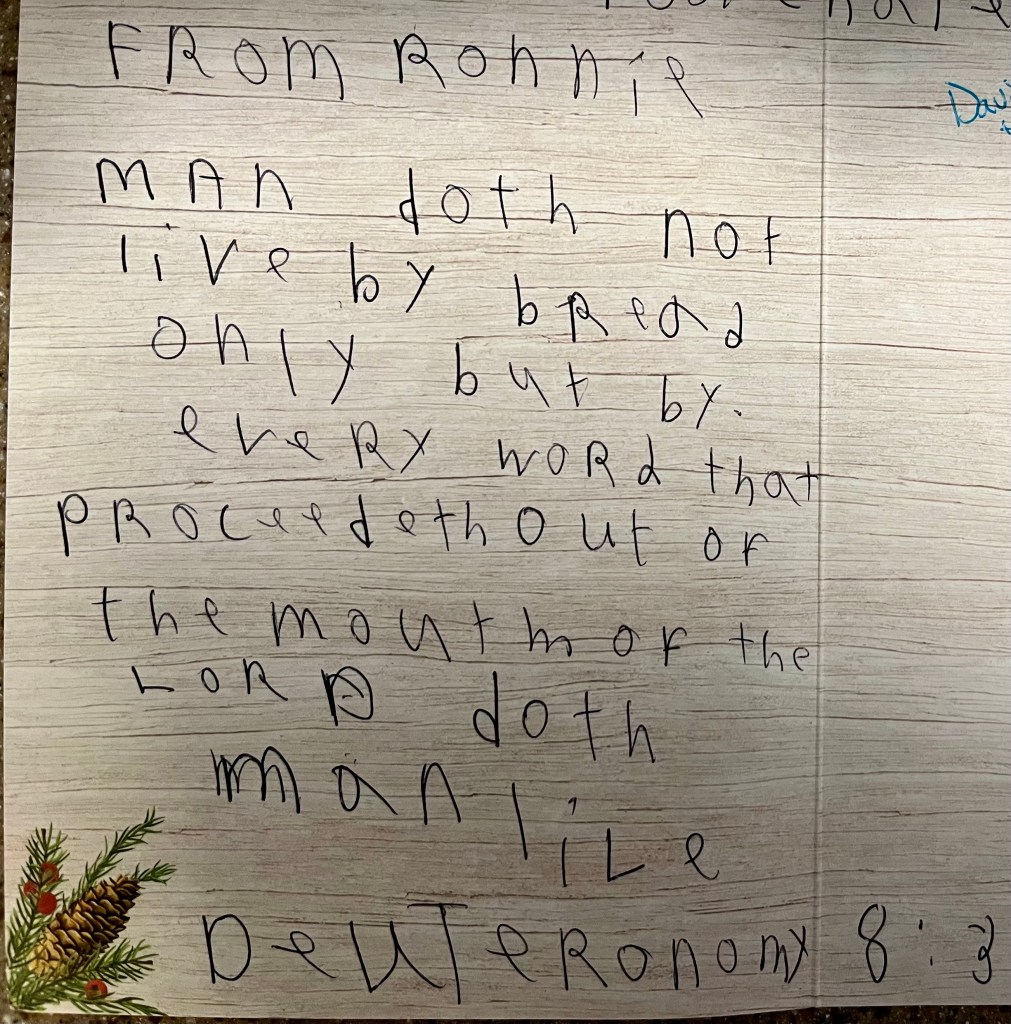 FROM Ronnie
MAN doth not
live by bread
only but by.
every word that
proceedeth out of
the mouth of the
LORD doth
man liLe
DeuTeRonomy 8:3